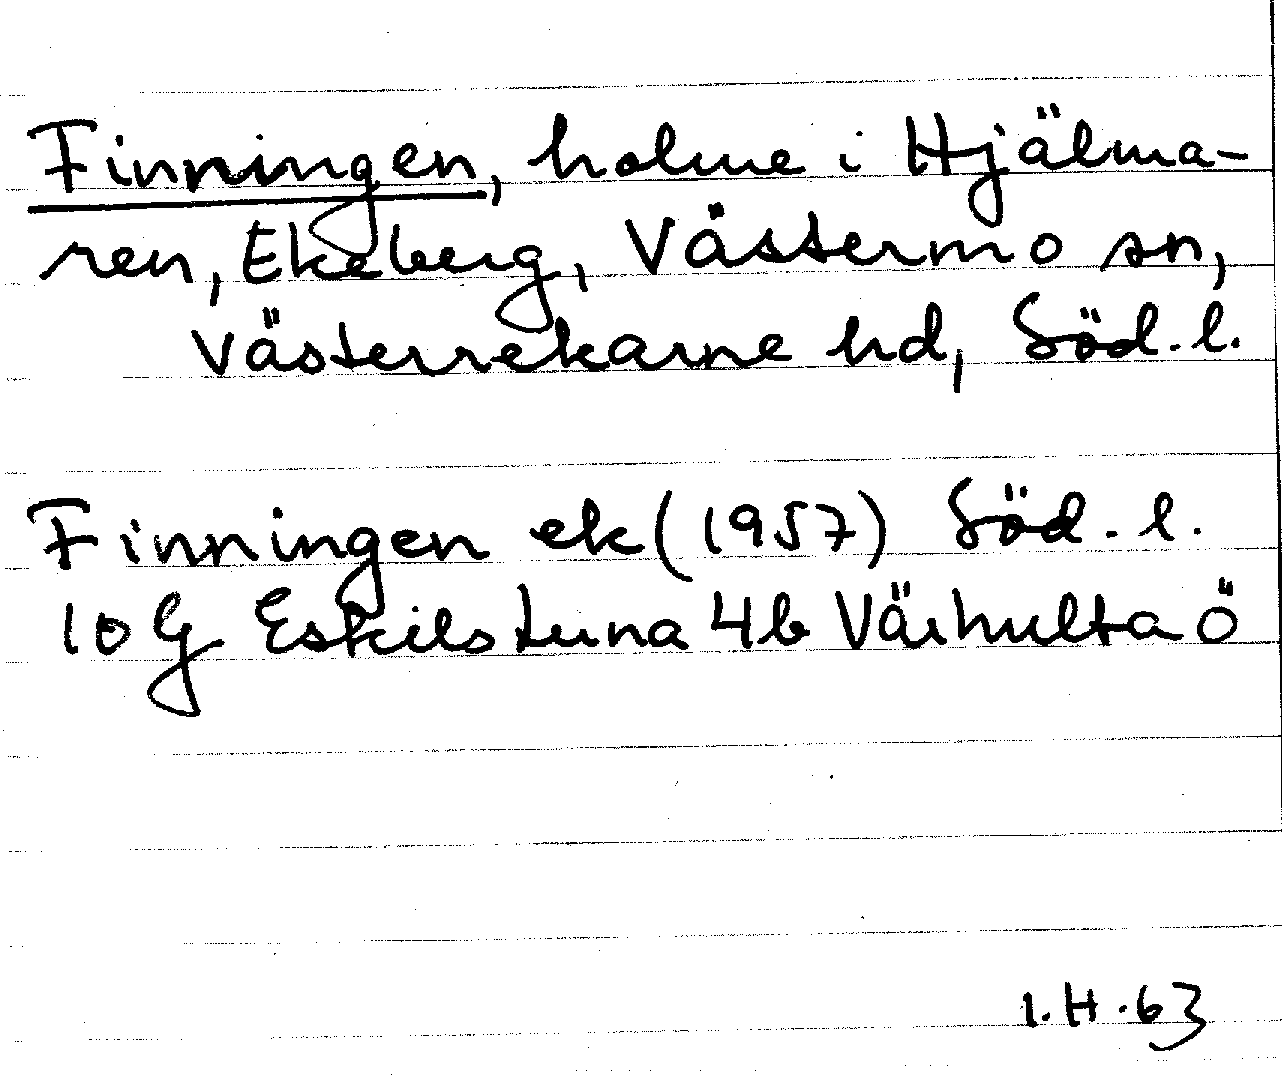 Finningen, holme i Hjälma-
ren, Ekeberg, Västermo sn,
Västerrekarne hd, Söd. l.
Finningen ek (1957) Söd. l.
10 G Eskilstuna 4b Värhulta ö
I.H.63